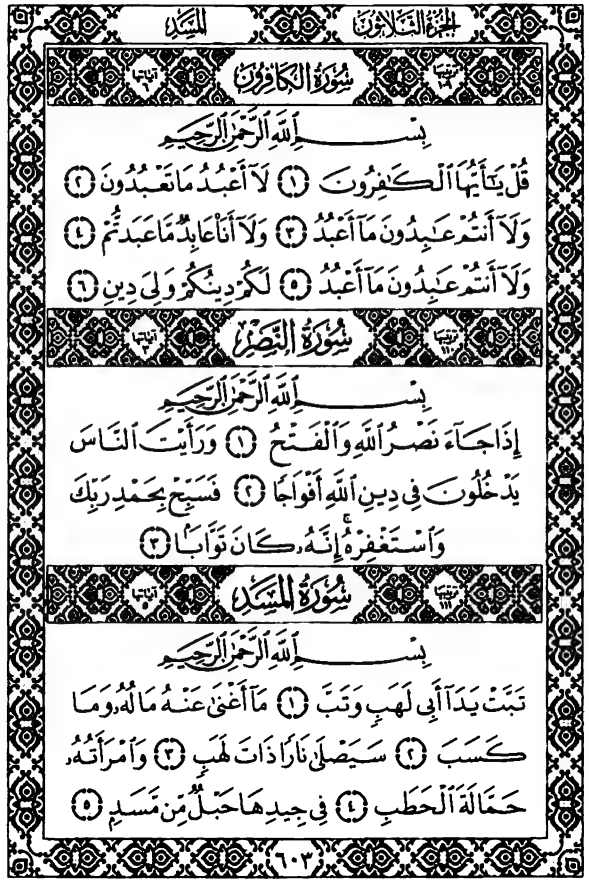 الجزء الثلاثون المسد
ترتيبها ١٠٩ سورة الكافرون آياتها ٦
بِسْمِ ٱللَّهِ ٱلرَّحْمَٰنِ ٱلرَّحِيمِ
قُلْ يَٰٓأَيُّهَا ٱلْكَٰفِرُونَ ۝١ لَآ أَعْبُدُ مَا تَعْبُدُونَ ۝٢
وَلَآ أَنتُمْ عَٰبِدُونَ مَآ أَعْبُدُ ۝٣ وَلَآ أَنَا۠ عَابِدٌ مَّا عَبَدتُّمْ ۝٤
وَلَآ أَنتُمْ عَٰبِدُونَ مَآ أَعْبُدُ ۝٥ لَكُمْ دِينُكُمْ وَلِىَ دِينِ ۝٦
ترتيبها ١١٠ سورة النصر آياتها ٣
بِسْمِ ٱللَّهِ ٱلرَّحْمَٰنِ ٱلرَّحِيمِ
إِذَا جَآءَ نَصْرُ ٱللَّهِ وَٱلْفَتْحُ ۝١ وَرَأَيْتَ ٱلنَّاسَ
يَدْخُلُونَ فِى دِينِ ٱللَّهِ أَفْوَاجًا ۝٢ فَسَبِّحْ بِحَمْدِ رَبِّكَ
وَٱسْتَغْفِرْهُ ۚ إِنَّهُۥ كَانَ تَوَّابًۢا ۝٣
ترتيبها ١١١ سورة المسد آياتها ٥
بِسْمِ ٱللَّهِ ٱلرَّحْمَٰنِ ٱلرَّحِيمِ
تَبَّتْ يَدَآ أَبِى لَهَبٍ وَتَبَّ ۝١ مَآ أَغْنَىٰ عَنْهُ مَالُهُۥ وَمَا
كَسَبَ ۝٢ سَيَصْلَىٰ نَارًا ذَاتَ لَهَبٍ ۝٣ وَٱمْرَأَتُهُۥ
حَمَّالَةَ ٱلْحَطَبِ ۝٤ فِى جِيدِهَا حَبْلٌ مِّن مَّسَدٍۭ ۝٥
٦٠٣